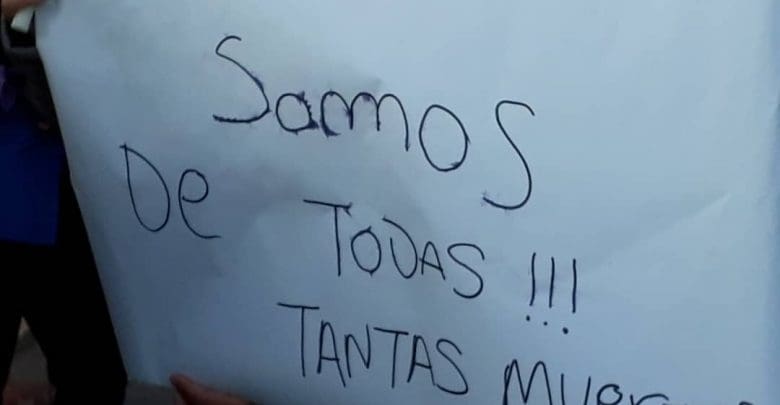 Somos
De TODAS !!!
TANTAS